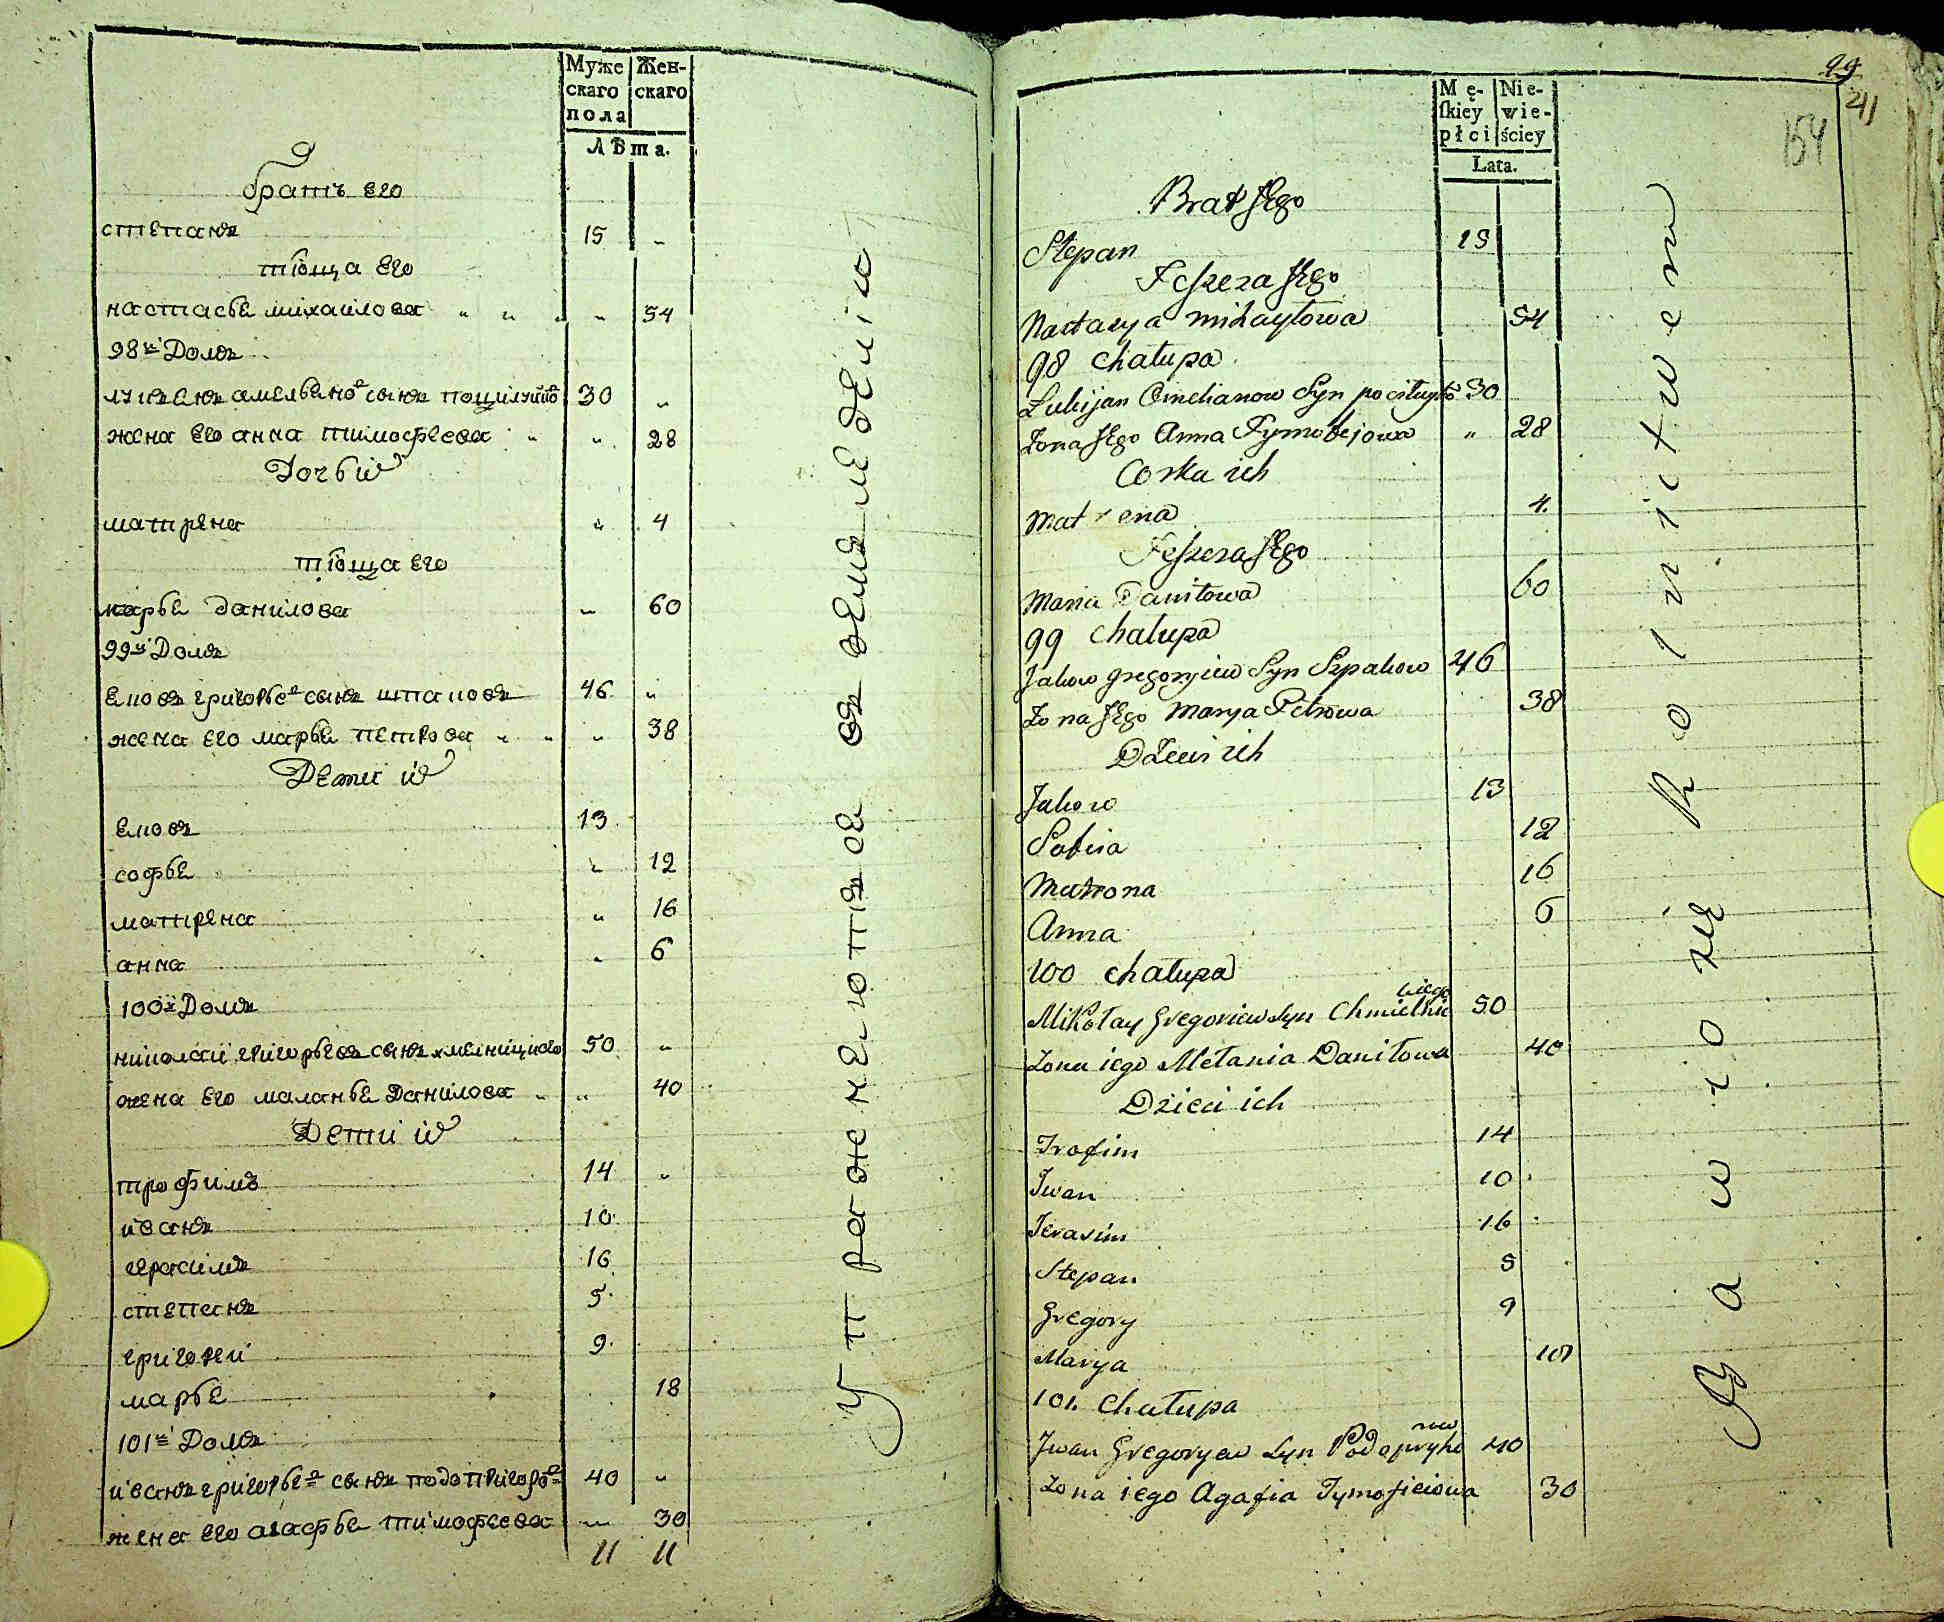 Муже Жен-
скаго скаго
пола
Лѣта.
братъ его
степанъ 15 "
тюща его
настасья михаилова " " " " 54
98й Домъ
лукьянъ амельяновъ сынъ 30 "
жена его анна тимофеева " " 28
Дочь их
матрена " 4
тюща его
марья данилова " 60
99й Домъ
яковъ григорьевъ сынъ шпаковъ 46 "
жена его марья петрова " " " 38
Дети их
яковъ 13
софья " 12
матрена " 16
анна " 6
100й Домъ
николай григорьевъ сынъ хмелницкого 50 "
жена его маланья Данилова " " 40
Дети их
трофимъ 14 "
иванъ 10
герасимъ 16
степанъ 5
григорей 9
марья 18
101й Домъ
иванъ григорьевъ сынъ подопригоро 40 "
жена его агафья тимофеева " 30
11 11
Упражнеютъся въ земледелiи
99
41
154
Mę- Nie-
skiey wie-
płci ściey
Lata.
Brat Jego
Stepan 15
Teszcza Jego
Nastasya Mihayłowa 54
98 Chałupa
Łukijan Omelianow Syn 30
Żona Jego Anna Tymofejowa " 28
Corka ich
Matrena 4.
Teszcza Jego
Maria Daniłowa 60
99 Chałupa
Jakow Gregoryiew Syn Szpakow 46
Żona Jego Marya Petrowa 38
Dzieci ich
Jakow 13
Sofia 12
Matrona 16
Anna 6
100 Chałupa
Mikołay Gregoriew Syn Chmielnickiego 50
Żona iego Mełania Daniłowa 40
Dzieci ich
Trofim 14
Iwan 10
Jerasim 16
Stepan 5
Gregory 9
Marya 18
101. Chałupa
Iwan Gregoryew Syn 40
Żona iego Agafia Tymofieiowa 30
Bawio się Rolnictwem